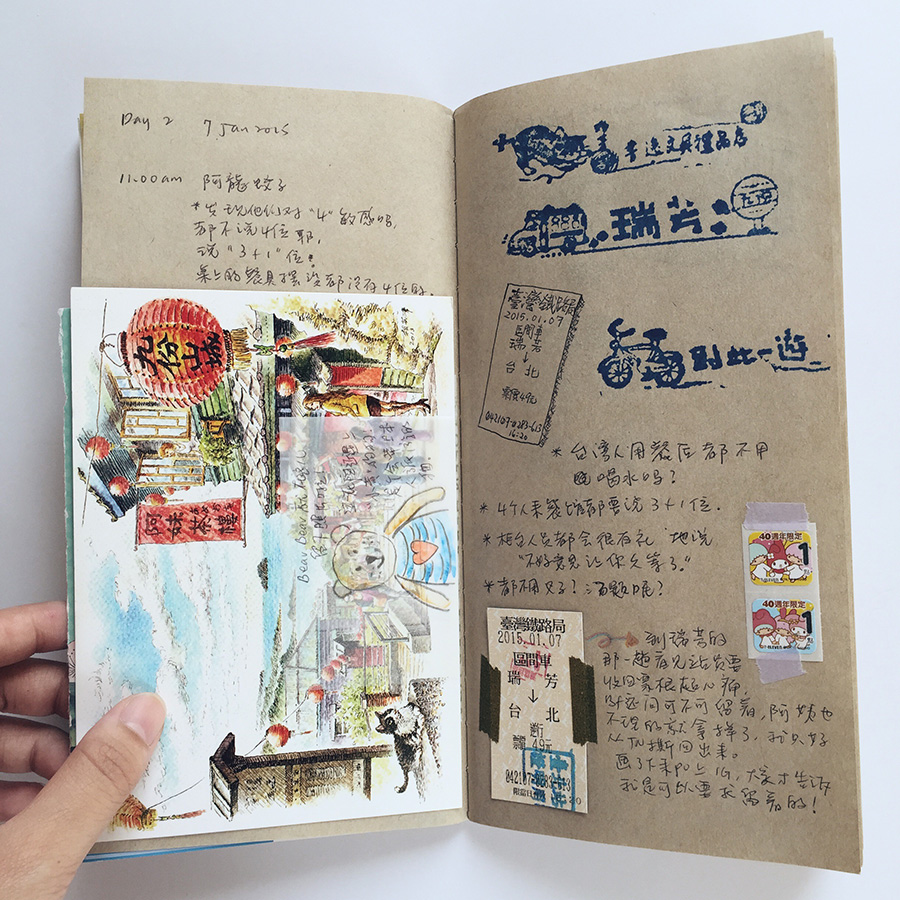 Day 2 7 Jan 2015
11.00am 阿龍蚊子
*发现他们对"4"敏感吗,
都不说4位耶,
说"3+1"位!
桌上的餐具摆设都没有4位的.
九份山城
阿妹茶樓
Bear Bear
文具禮品店
瑞芳
到此一遊
臺灣鐵路局
2015.01.07
區間車
瑞芳
↓
台北
票價49元
042107-0283-613
16:20
*台湾人用餐后都不用
喝水吗?
*4个人来餐馆都要说3+1位.
*柜台人员都会很有礼地说
"不好意思让你久等了."
*都不用叉子?
40週年限定
1
7-ELEVEN
40週年限定
1
7-ELEVEN
臺灣鐵路局
2015.01.07
區間車
瑞芳
↓
台北
49元
042107-0283-613
→到瑞芳的
那一趟看见站员要
收回票根超心痛,
问可不可以留着,阿姨也
不理的就拿掉了,我只好
画下来po上IG,大家才告诉
我是可以要求留着的!